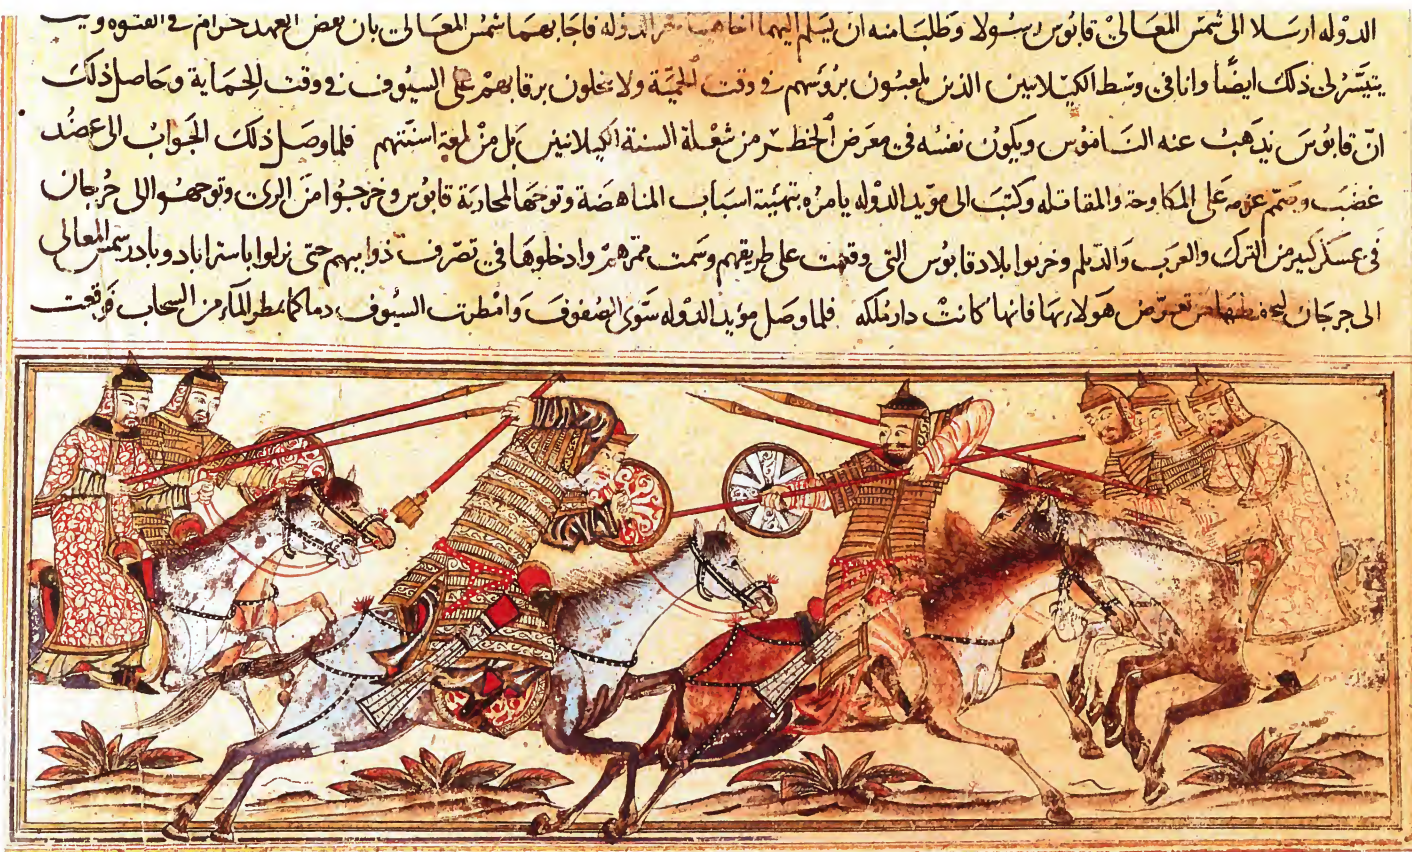 الدوله ارسلا الى شمس المعالي قابوس رسولا وطلبا منه ان يسلم اليهما اخاهما فخر الدوله فاجابهما شمس المعالي بان نقض العهد حرام في الفتوه وكيف
يتيسر لي ذلك ايضا وانا في وسط الكيلانيين الذين يلعبون برؤسهم في وقت الحمية ولا يبخلون برقابهم على السيوف في وقت الحماية وحاصل ذلك
ان قابوس يذهب عنه الناموس ويكون نفسه في معرض الخطر من شعلة السنة الكيلانيين بل من لمعة اسنتهم فلما وصل ذلك الجواب الى عضد
غضب وصمم عزمه على المكاوحة والمقاتله وكتب الى مويد الدوله يامره بتهيئة اسباب المناهضة وتوجها لمحاربة قابوس وخرجوا من الرى وتوجهوا الى جرجان
فى عسكر كبير من الترك والعرب والديلم وخربوا بلاد قابوس التى وقعت على طريقهم وسمت ممرهم وادخلوها في تصرف ذوابيهم حتى نزلوا باستراباد وبادر شمس المعالى
الى جرجان ليحفظها من تعرض هولاء بها فانها كانت دار ملكه فلما وصل مؤيد الدوله سوى الصفوف وامطرت السيوف دما كما يمطر الماء من السحاب فرقعت